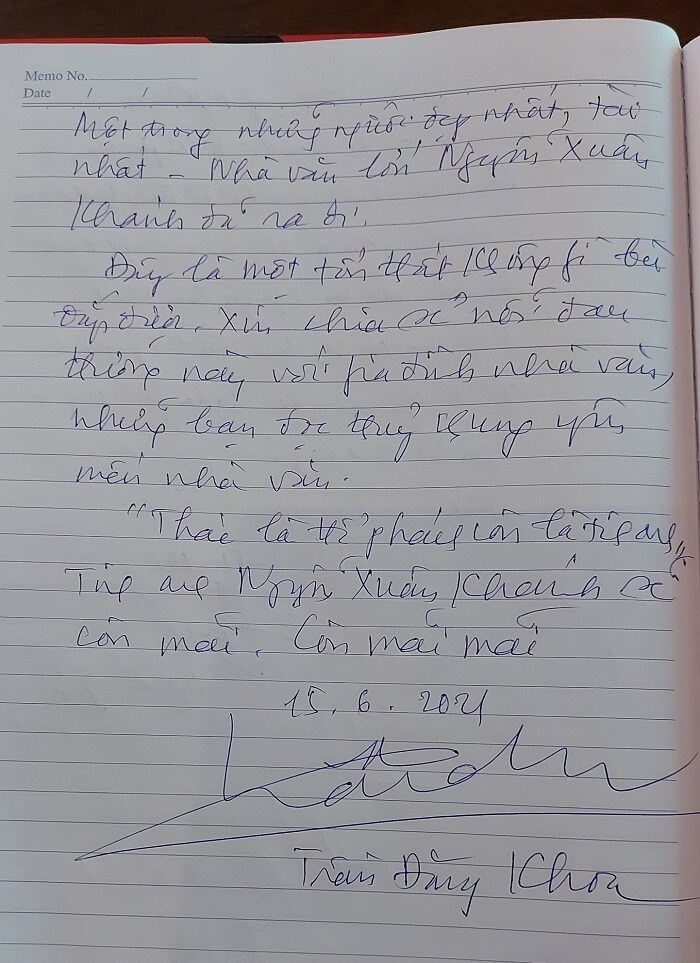 Memo No.
Date / /
Một trong những người đẹp nhất, tài
nhất - Nhà văn lớn Nguyễn Xuân
Khánh đã ra đi.
Đây là một tổn thất không gì bù
đắp được. Xin chia sẻ nỗi đau
thương này với gia đình nhà văn,
những bạn đọc thuỷ chung yêu
mến nhà văn.
"Thác là thể phách, còn là tinh anh"
Tinh anh Nguyễn Xuân Khánh sẽ
còn mãi. Còn mãi mãi
15.6.2021
Trần Đăng Khoa